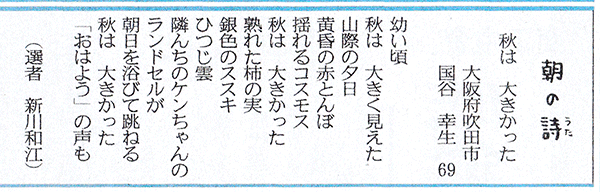 朝の詩
うた
秋は　大きかった
大阪府吹田市
国谷　幸生　69
幼い頃
秋は　大きく見えた
山際の夕日
黄昏の赤とんぼ
揺れるコスモス
秋は　大きかった
熟れた柿の実
銀色のススキ
ひつじ雲
隣んちのケンちゃんの
ランドセルが
朝日を浴びて跳ねる
秋は　大きかった
「おはよう」の声も
（選者　新川和江）